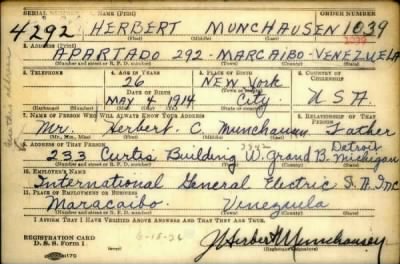 SERIAL NUMBER 1. NAME (Print) ORDER NUMBER
4292 HERBERT MUNCHAUSEN 1039
(First) (Middle) (Last)
2. ADDRESS (Print)
APARTADO 292 MARCAIBO-VENEZUELA
(Number and street or R. F. D. number) (Town) (County) (State)
3. TELEPHONE 4. AGE IN YEARS 5. PLACE OF BIRTH 6. COUNTRY OF CITIZENSHIP
26 NEW YORK
DATE OF BIRTH (Town or county)
MAY 4 1914 City U.S.A.
(Exchange) (Number) (Mo.) (Day) (Yr.) (State or country)
7. NAME OF PERSON WHO WILL ALWAYS KNOW YOUR ADDRESS 8. RELATIONSHIP OF THAT PERSON
Mr. Herbert C. Munchausen Father
(Mr., Mrs., Miss) (First) (Middle) (Last)
9. ADDRESS OF THAT PERSON
233 Curtis Building W. Grand B. Detroit Michigan
(Number and street or R. F. D. number) (Town) (County) (State)
10. EMPLOYER'S NAME
International General Electric S.A. Inc
11. PLACE OF EMPLOYMENT OR BUSINESS
Maracaibo. Venezuela
(Number and street or R. F. D. number) (Town) (County) (State)
I AFFIRM THAT I HAVE VERIFIED ABOVE ANSWERS AND THAT THEY ARE TRUE.
REGISTRATION CARD
D. S. S. Form 1
J Herbert Munchausen
(Registrant's signature)